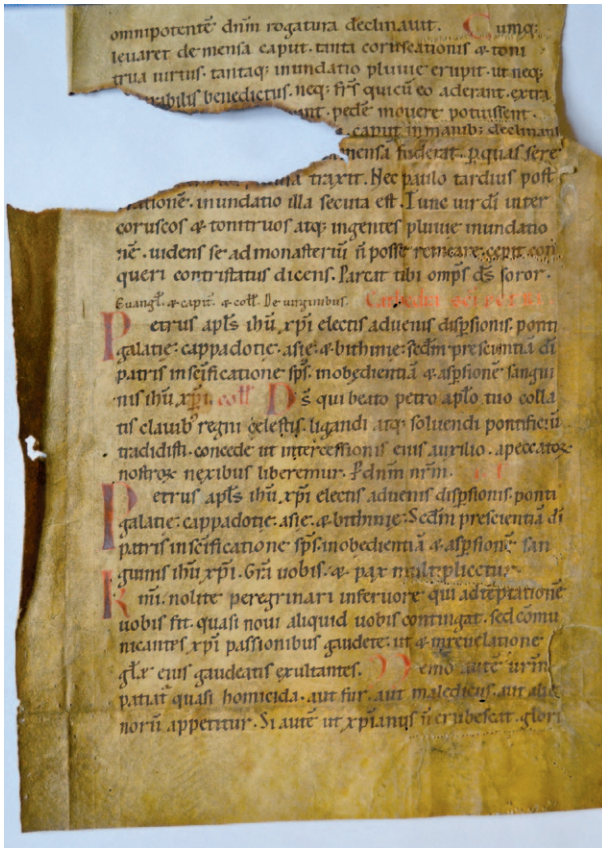 omnipotentē dnm̄ rogatura declinauit. Cumq;
leuaret de mensa caput. tanta coruscationis & toni
trua uirtus. tantaq; inundatio pluuie erupit. ut neq;
benedictus. neq; frs̄ qui cū eo aderant. extra
pedē mouere potuissent.
caput in manib; declinaui
mensa fuderat. p quas sere
traxit. Nec paulo tardius post
inundatio illa secuta est. Tunc uir dī inter
coruscos & tonitruos atq; ingentes pluuie inundatio
nē. uidens se ad monasteriū n̄ posse remeare. cepit con
queri contristatus dicens. Parcat tibi omp̄s ds̄ soror.
Euangl̄. & capit̄. & coll̄. De uirginibus. Cathedra sci petri
Petrus apl̄s ihū xp̄i electis aduenis disp̄sionis. ponti
galatie. cappadotie. asie. & bithinie. scdm̄ presciuntiā dī
patris in scīficatione sp̄s. in obedientiā & asp̄sionē sangui
nis ihū xp̄i. coll̄. Ds̄ qui beato petro aplo tuo colla
tis clauib; regni celestis. ligandi atq; soluendi pontificiū
tradidisti. concede ut intercessionis eius auxilio. a peccatoꝝ
nostroꝝ nexibus liberemur. P dnm̄ nrm̄.
Petrus apl̄s ihū xp̄i electis aduenis disp̄sionis. ponti
galatie. cappadotie. asie. & bithinie. Scdm̄ prescientiā dī
patris in scīficatione sp̄s. in obedientiā & asp̄sionē san
guinis ihū xp̄i. Grā uobis. & pax multiplicetur.
Kmi. nolite peregrinari in feruore qui ad tēptationē
uobis fit. quasi noui aliquid uobis contingat. sed cōmu
nicantes xp̄i passionibus gaudete. ut & in reuelatione
glīe eius gaudeatis exultantes. Nemo autē urm̄
patiat̄ quasi homicida. aut fur. aut maledicus. aut alie
norū appetitur. Si autē ut xp̄ianus n̄ erubescat. glori